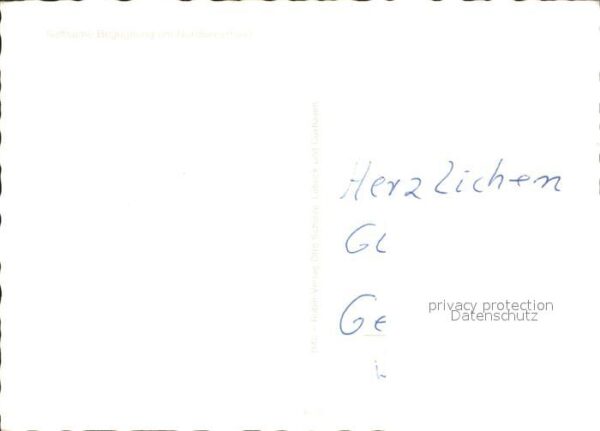 Seltsame Begegnung am Nordseestrand
Herzlichen
Gl
Ge
privacy protection
Datenschutz